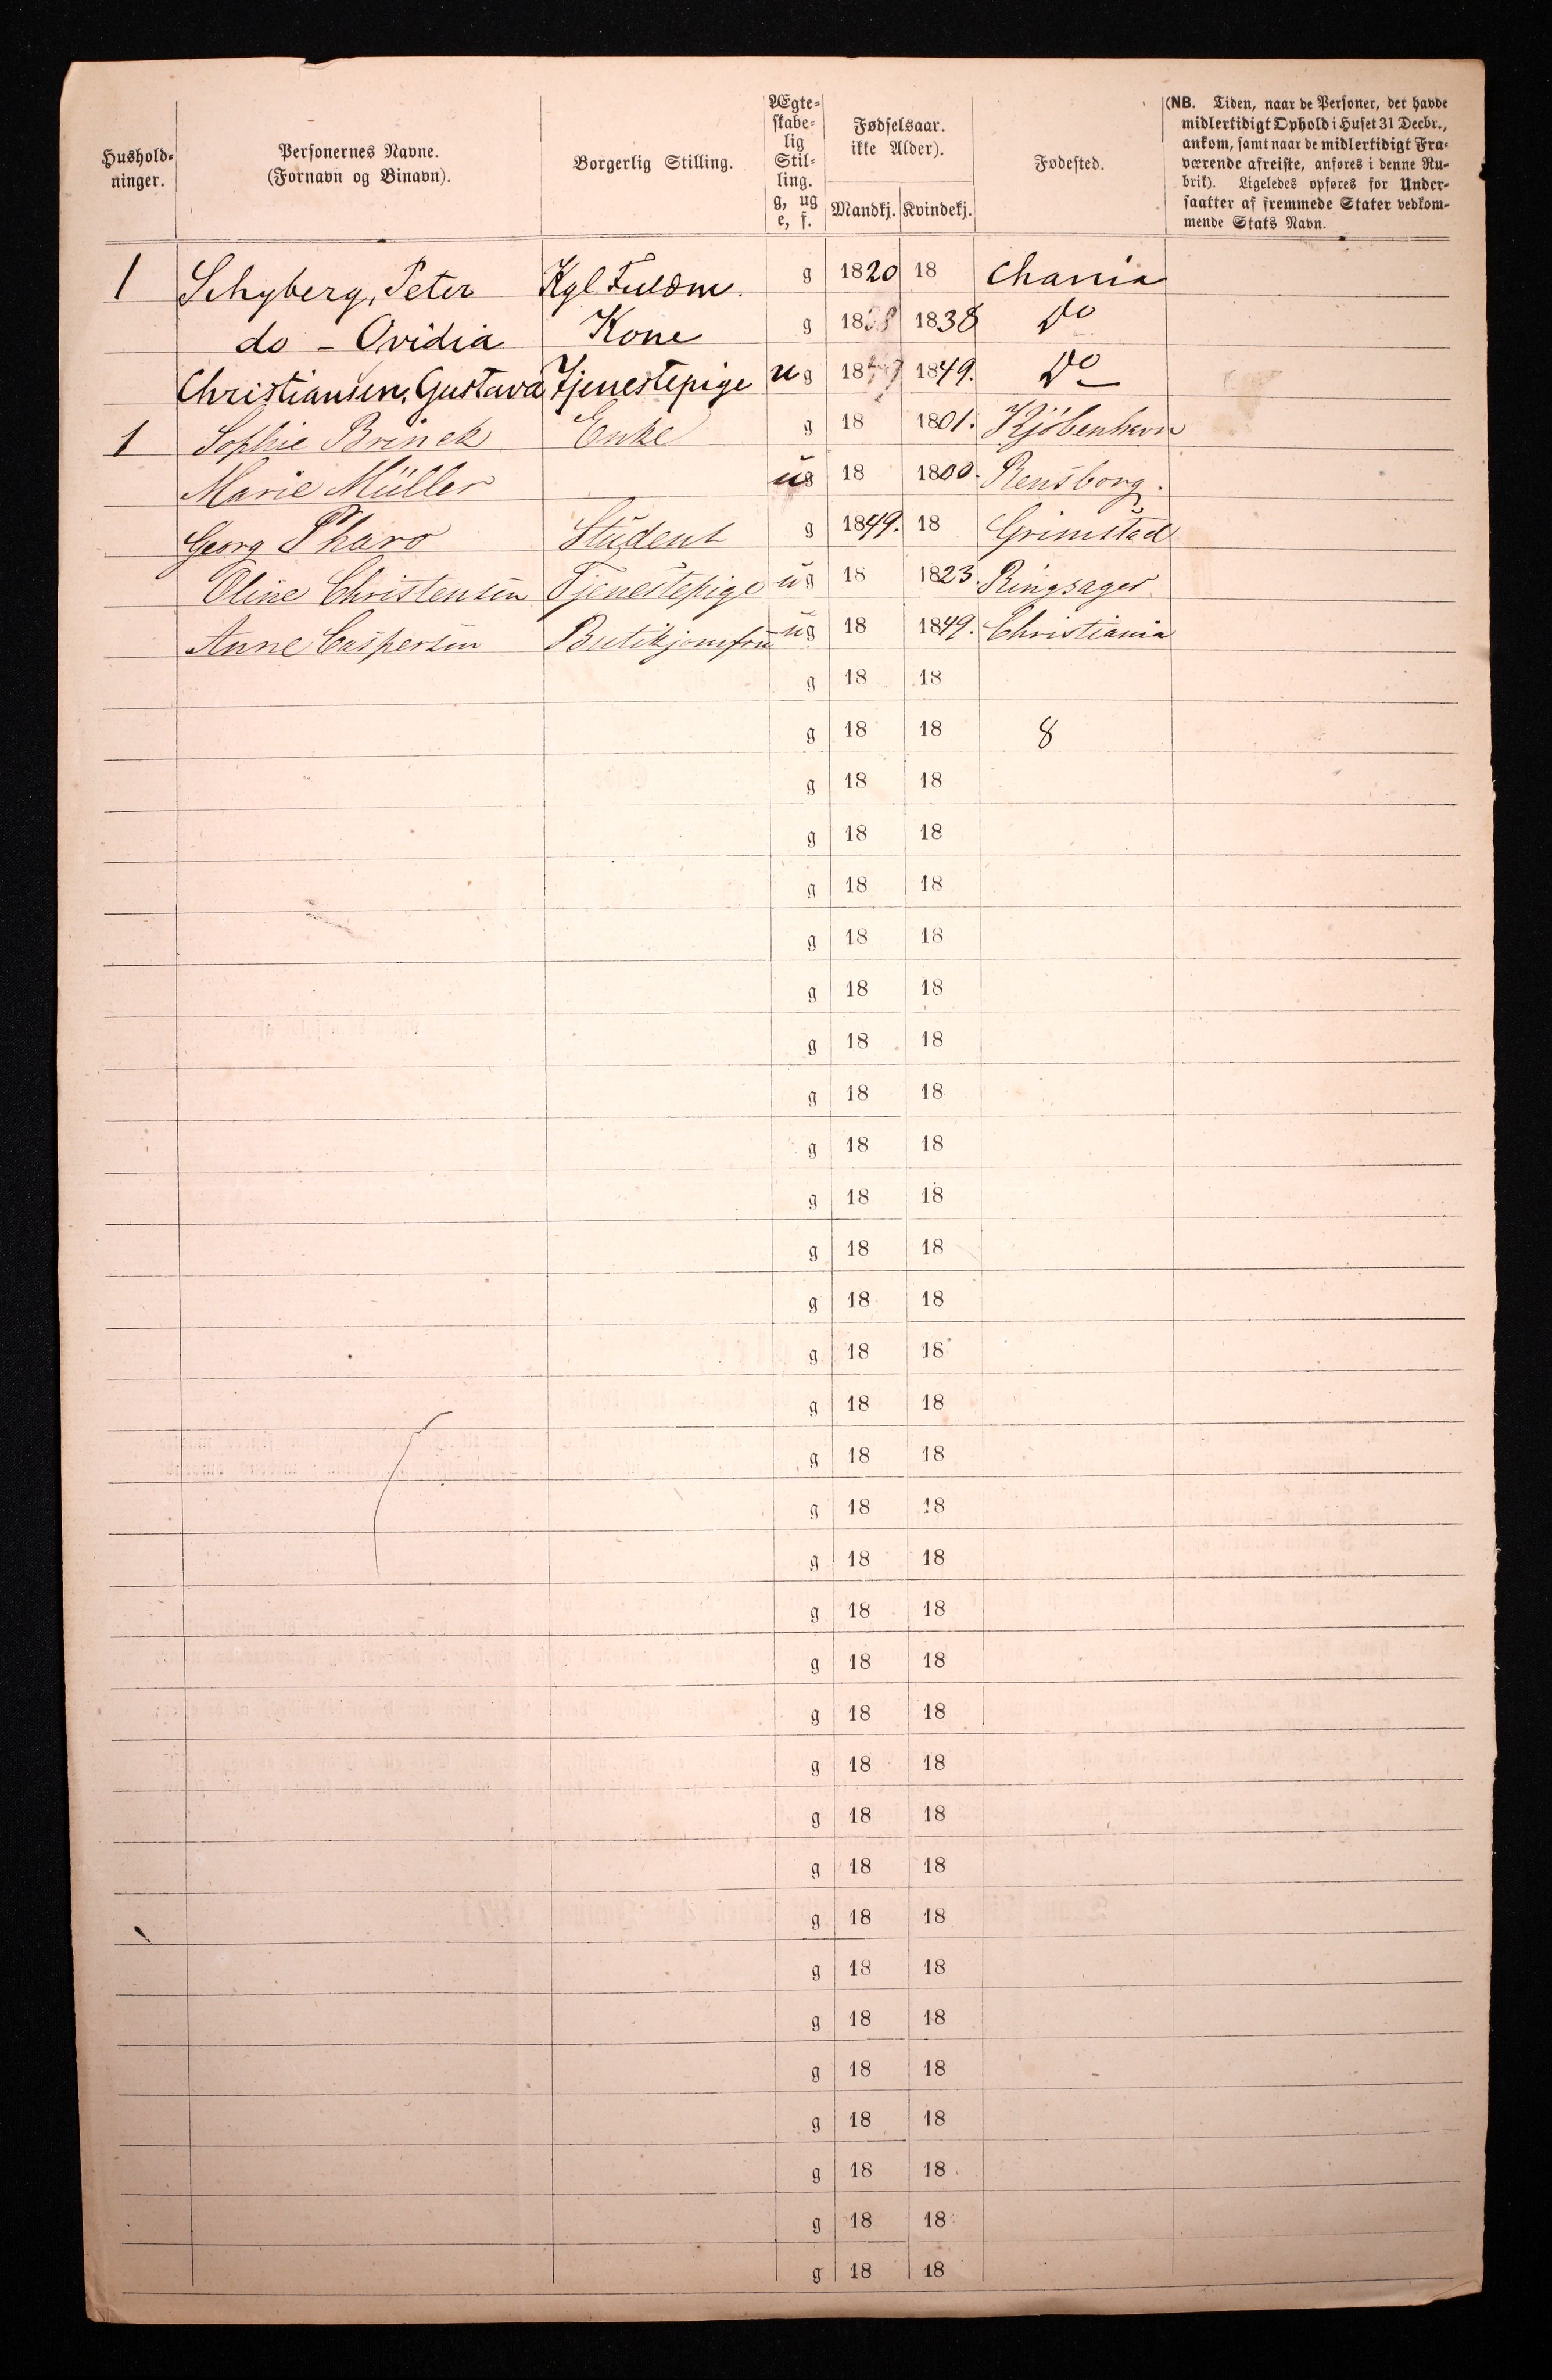 Hushold-
ninger.
Personernes Navne.
(Fornavn og Binavn).
Borgerlig Stilling.
Ægte-
skabe-
lig
Stil-
ling.
g, ug
e, f.
Fødselsaar.
ikke Alder).
Mandkj. Kvindekj.
Fødested.
(NB. Tiden, naar de Personer, der havde
midlertidigt Ophold i Huset 31 Decbr.,
ankom, samt naar de midlertidigt Fra-
værende afreiste, anføres i denne Ru-
brik). Ligeledes opføres for Under-
saatter af fremmede Stater vedkom-
mende Stats Navn.
1 Schyberg, Peter Kgl Fuldm. g 1820 18 Chania
do - Ovidia Kone g 18 1838 Do
Christiansen, Gustava Tjenestepige ug 18 1849. Do
1 Sophie Brinck Enke g 18 1801. Kjöbenhavn
Marie Müller ug 18 1800. Rensborg.
Georg Pharo Student g 1849. 18 Grimstad
Oline Christensen Tjenestepige ug 18 1823. Ringsager
Anne Caspersen Butikjomfru ug 18 1849. Christiania
g 18 18
g 18 18 8
g 18 18
g 18 18
g 18 18
g 18 18
g 18 18
g 18 18
g 18 18
g 18 18
g 18 18
g 18 18
g 18 18
g 18 18
g 18 18
g 18 18
g 18 18
g 18 18
g 18 18
g 18 18
g 18 18
g 18 18
g 18 18
g 18 18
g 18 18
g 18 18
g 18 18
g 18 18
g 18 18
g 18 18
g 18 18
g 18 18